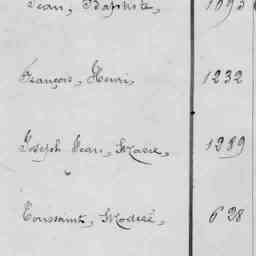 Jean, Baptiste,
François, Henri, 1232
Joseph Jean, Marie, 1289
Toussaint, Modeste, 628